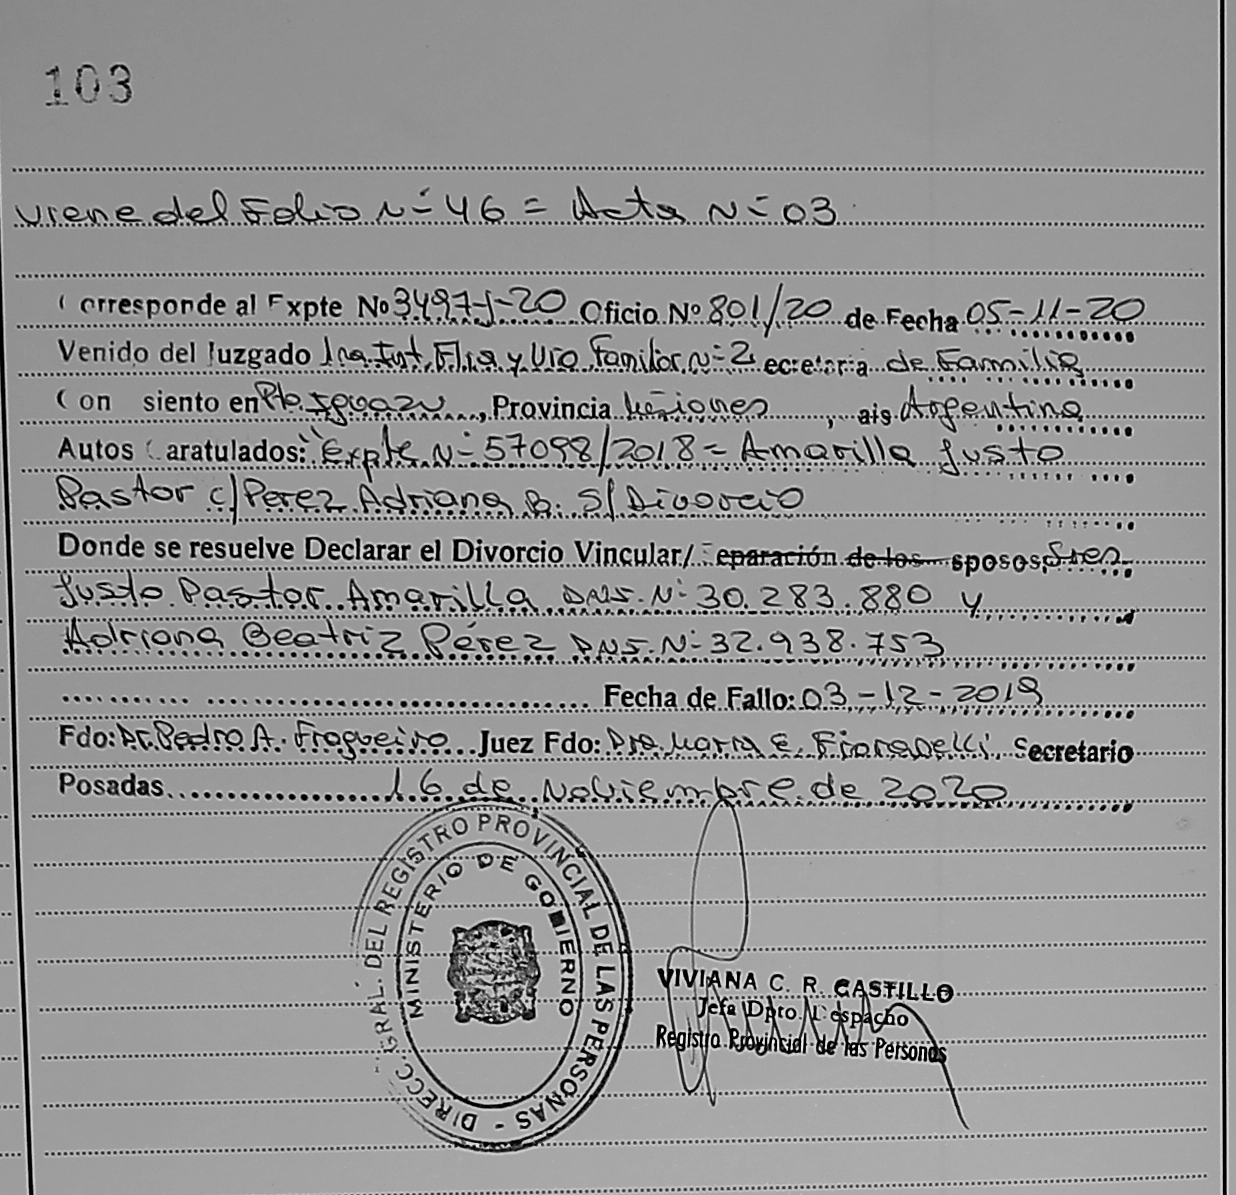 103
viene del Folio N= 46 = Acta N= 03
Corresponde al Expte No 3497-J-20 Oficio Nº 801/20 de Fecha 05-11-20
Venido del Juzgado 1ra. Inst. Flia y Vio Familiar N= 2 ecretaria de Familia
Con siento en Pto. Iguazu, Provincia Misiones, ais Argentina
Autos Caratulados: "Expte N= 57098/2018 = Amarilla Justo
Pastor c/ Perez Adriana B. S/ Divorcio
Donde se resuelve Declarar el Divorcio Vincular/ Separación de los sposos, Sres
Justo Pastor Amarilla DNI. N= 30.283.880 y
Adriana Beatriz Pérez DNI. N= 32.938.753
Fecha de Fallo: 03-12-2019
Fdo: Dr. Pedro A. Fragueiro Juez Fdo: Dra Maria E. Secretario
Posadas 16 de Noviembre de 2020
DIRECC. GRAL. DEL REGISTRO PROVINCIAL DE LAS PERSONAS -
MINISTERIO DE GOBIERNO
VIVIANA C. R. CASTILLO
Jefa Dpto. Despacho
Registro Provincial de las Personas